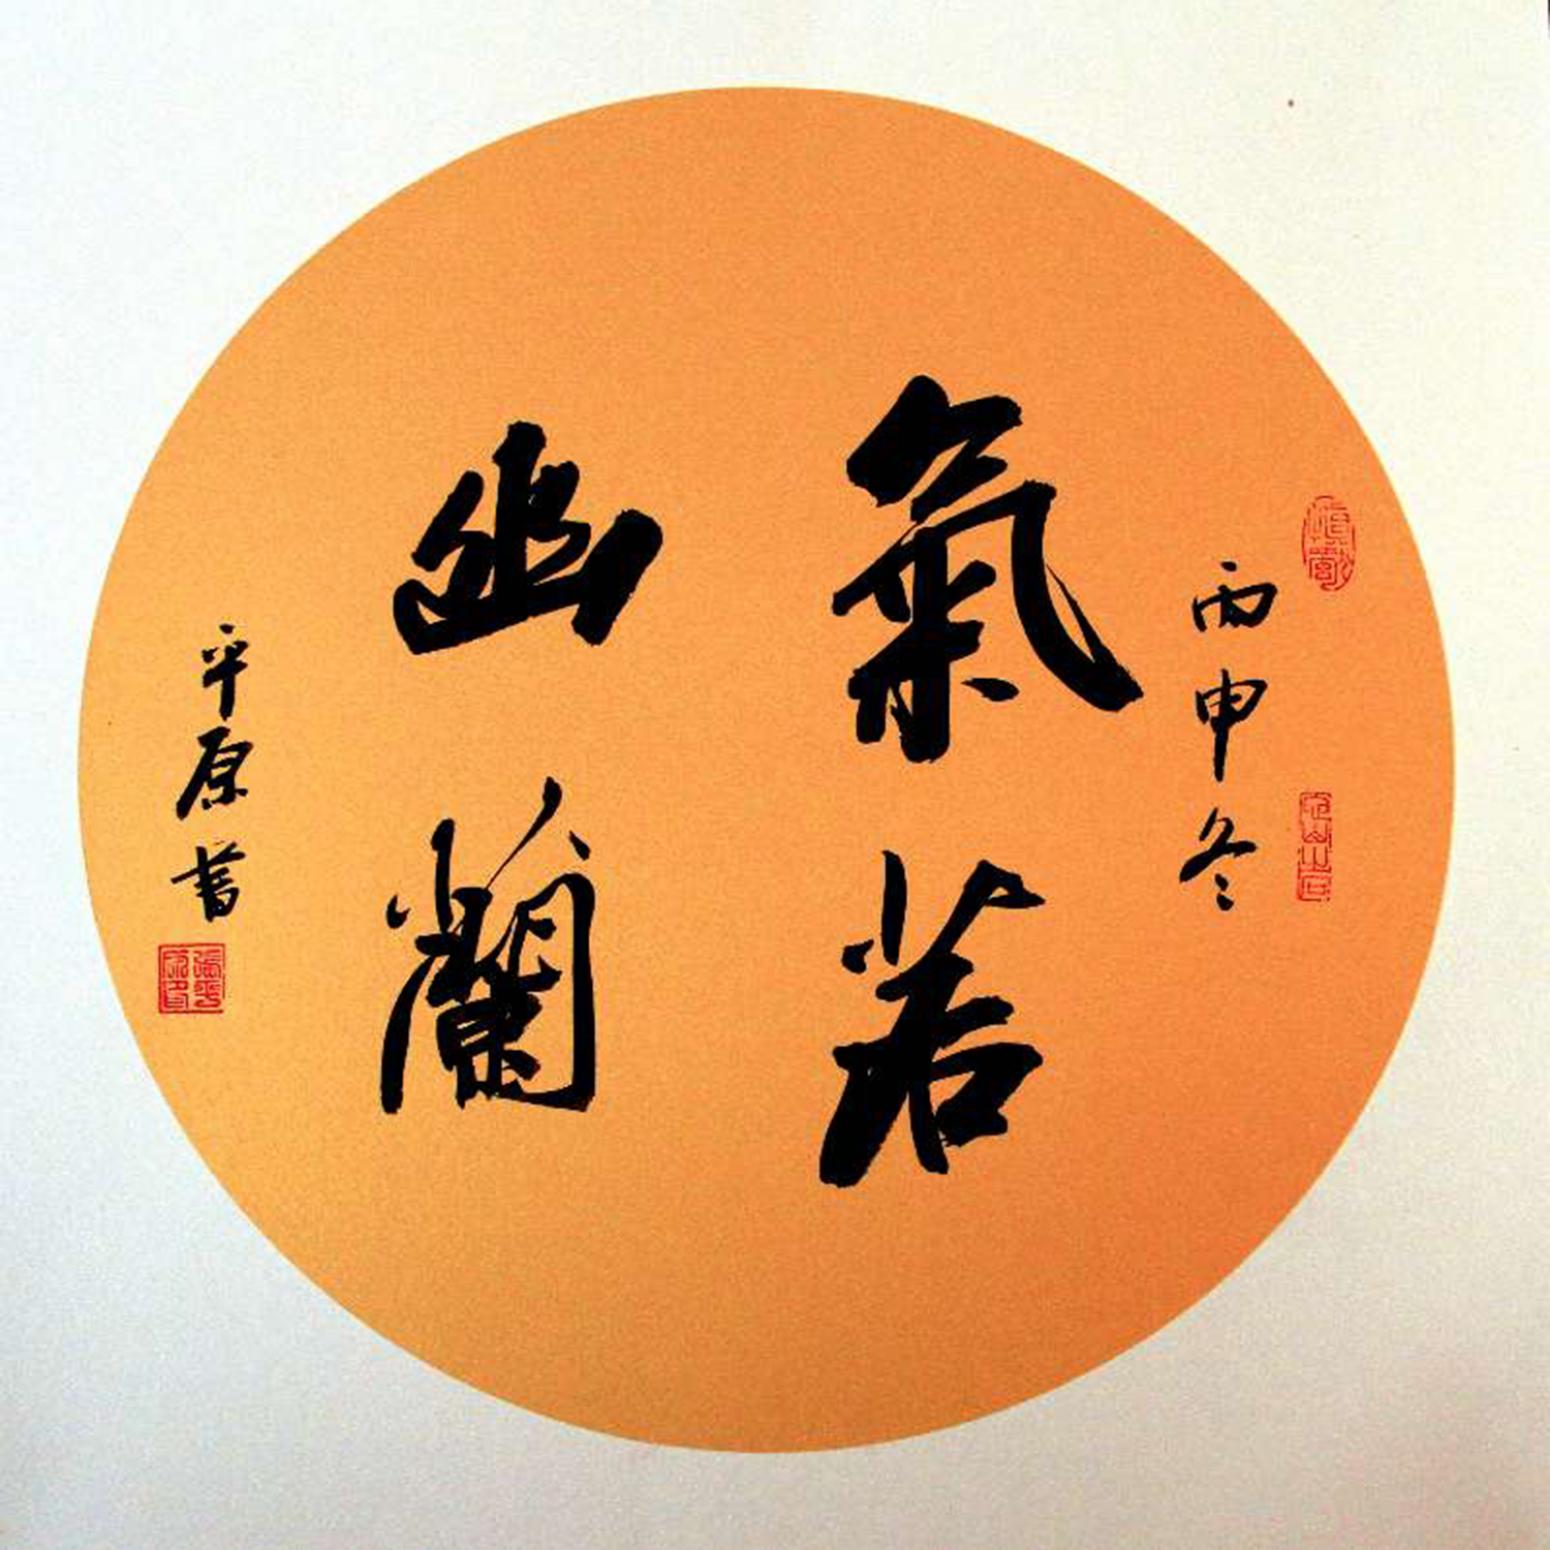 丙申冬
氣若
幽蘭
平原書